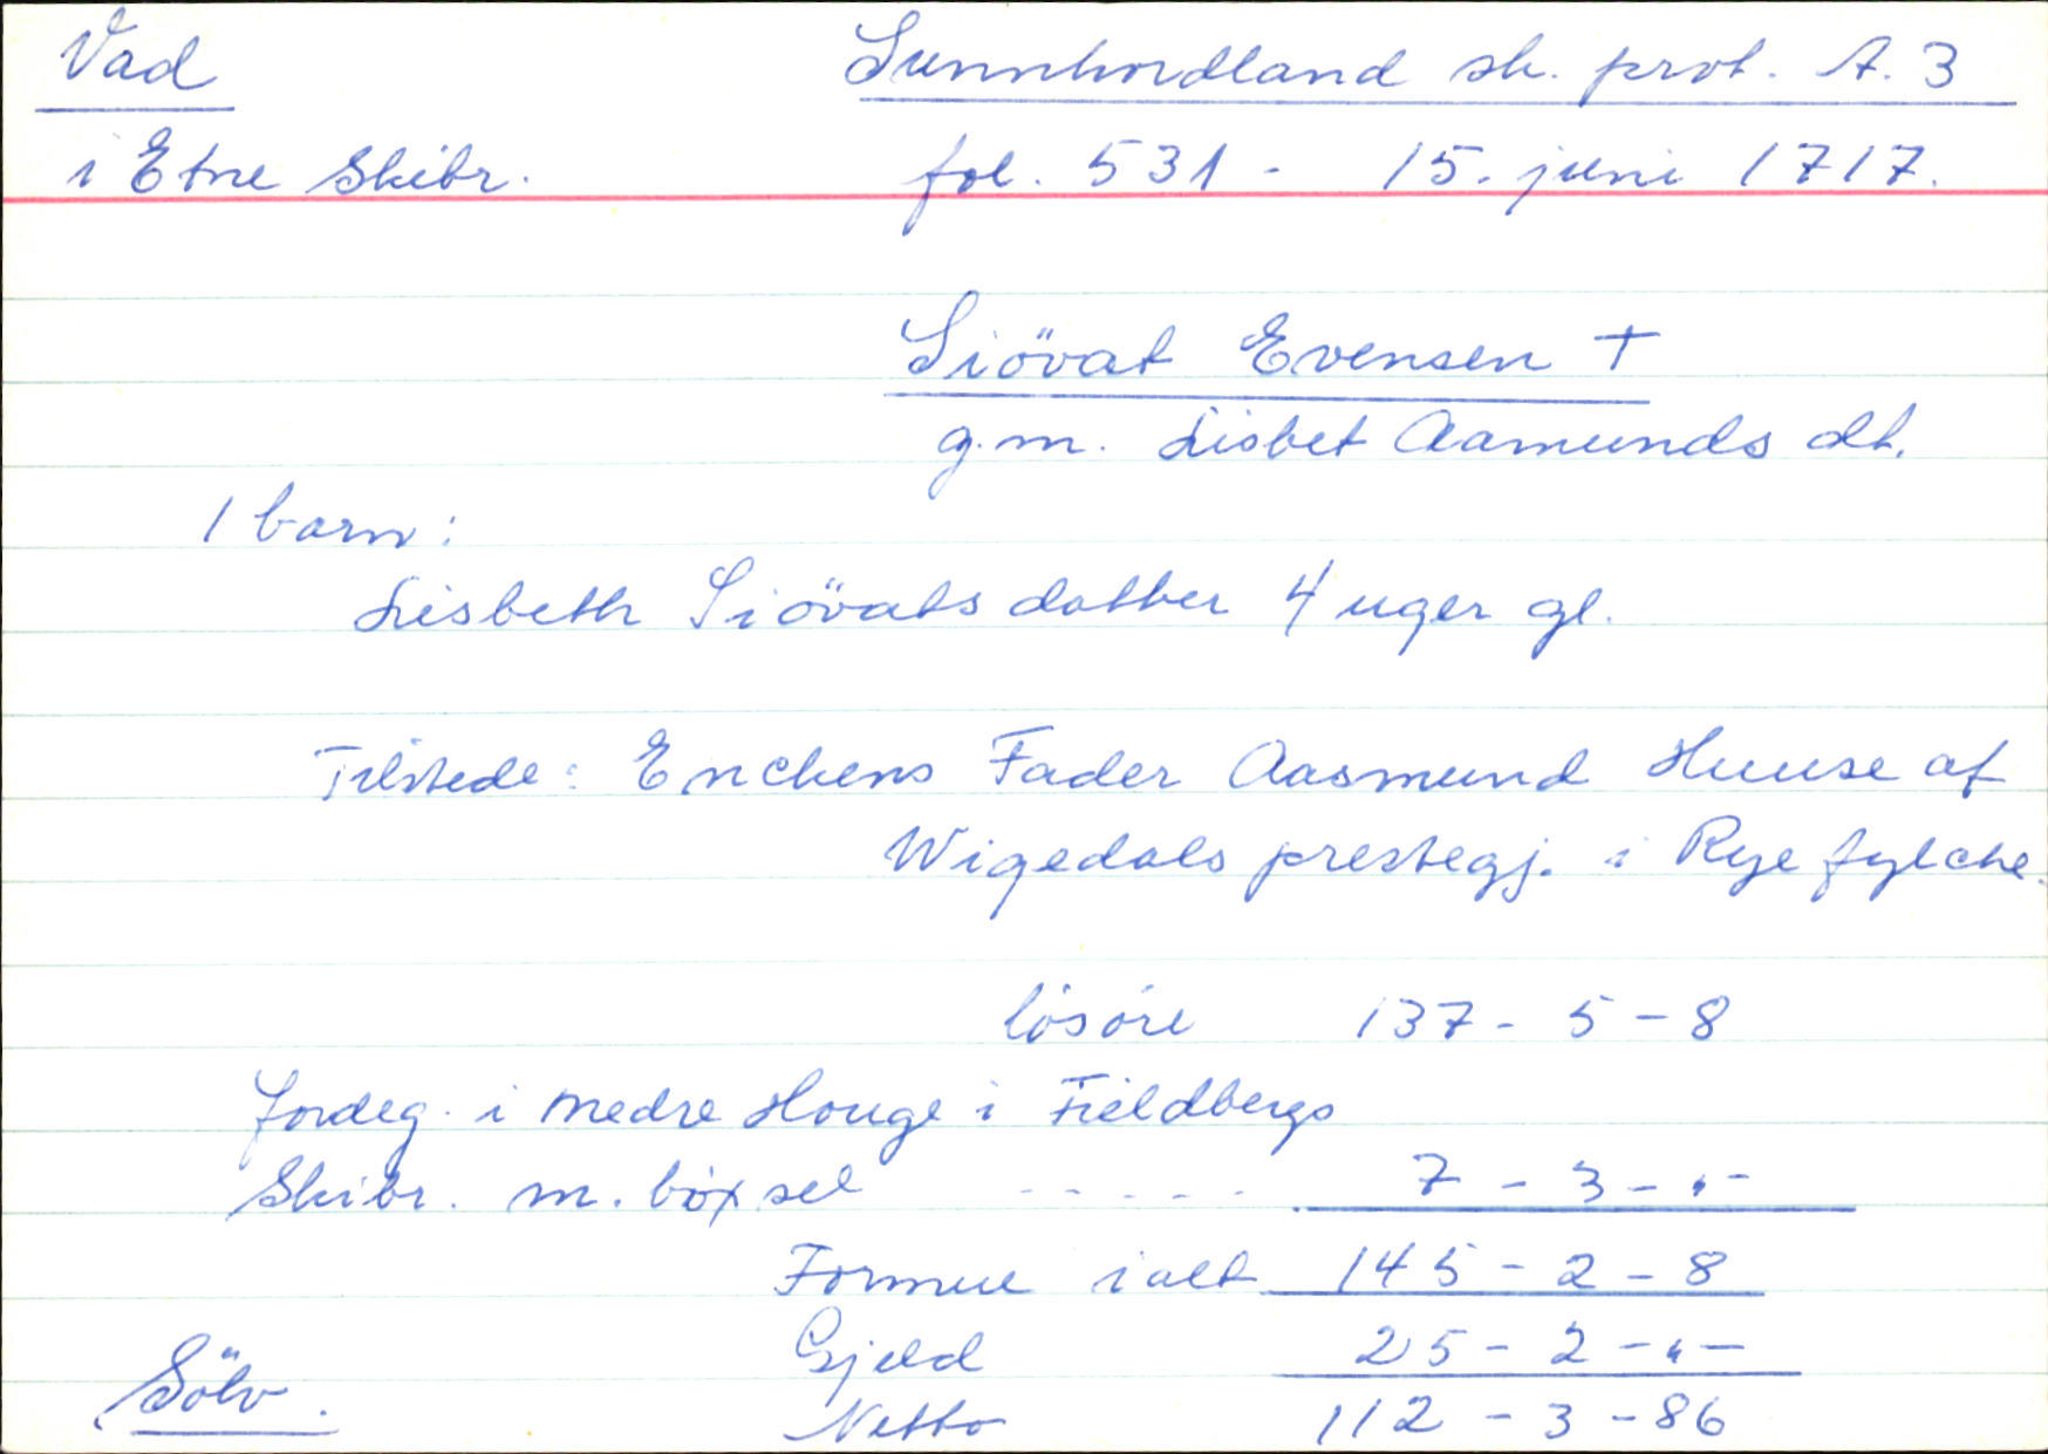 Vad
Sunnhordland sk. prot. A. 3
i Etne Skibr.
fol. 531 - 15. juni 1717.
Siövat Evensen +
g.m. Lisbet Aamunds dt.
1 barn:
Lisbeth Siövats datter 4 uger gl.
Tilstede: Enckens Fader Aasmund Huuse af
Wigedals prestegj. i Rye fylche.
lösöre 137 - 5 - 8
Jordeg. i Nedre Houge i Fieldbergs
Skibr. m. böxsel - - - - - 7 - 3 - " -
Formue ialt 145 - 2 - 8
Gjeld 25 - 2 - " -
Sölv.
Netto 112 - 3 - 86